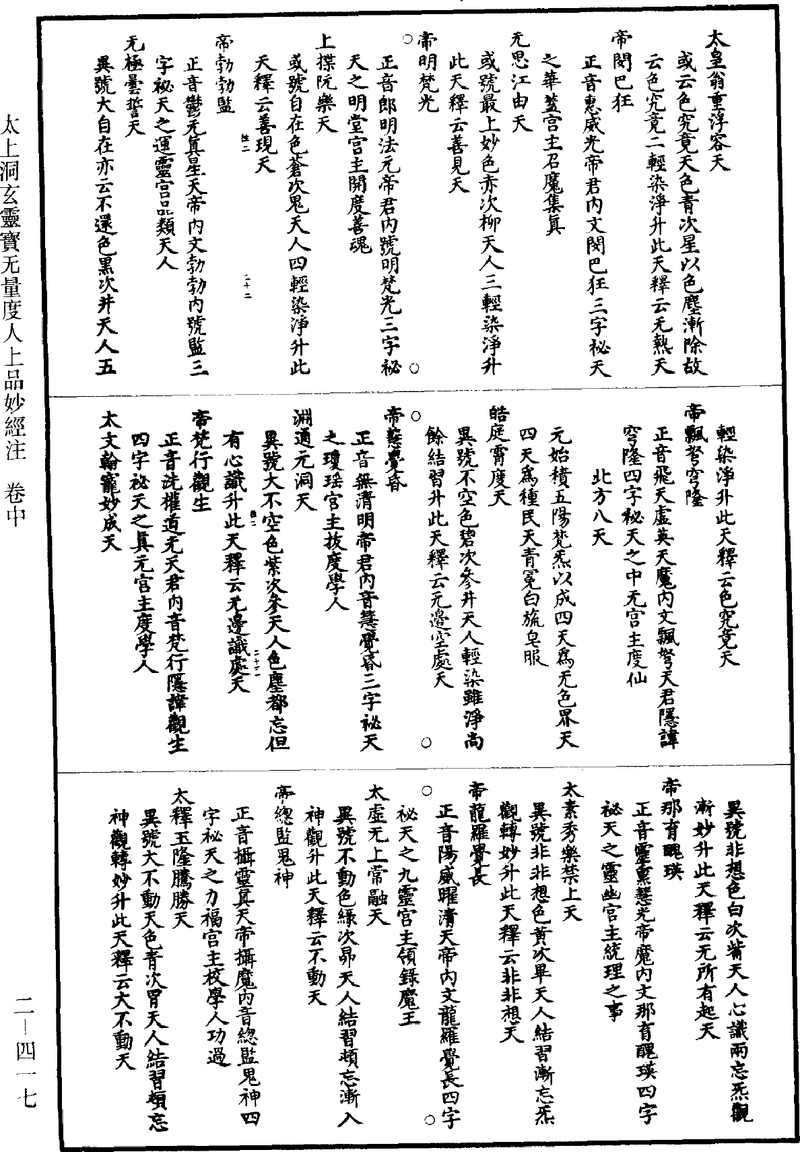 太皇翁重浮容天
或云色究竟天色青次星以色塵漸除故
云色究竟二輕染淨升此天釋云无熱天
帝閔巴狂
正音惠威光帝君內文閔巴狂三字祕天
之華蓋宮主召魔集真
无思江由天
或號最上妙色赤次柳天人三輕染淨升
此天釋云善見天
帝明梵光
正音郎明法元帝君內號明梵光三字祕
天之明堂宮主開度善魂
上揲阮樂天
或號自在色蒼次鬼天人四輕染淨升此
天釋云善現天
帝勃勃監
正音鬱无真星天帝內文勃勃內號監三
字祕天之運靈宮品類天人
无極曇誓天
異號大自在亦云不還色黑次井天人五
輕染淨升此天釋云色究竟天
帝飄弩穹隆
正音飛天虛英天魔內文飄弩天君隱諱
穹隆四字祕天之中元宮主度仙
北方八天
元始積五陽梵炁以成四天為无色界天
四天為種民天青冕白旒皂服
皓庭霄度天
異號不空色碧次參井天人輕染雖淨尚
餘結習升此天釋云无邊空處天
帝慧覺昏
正音無清明帝君內音慧覺昏三字祕天
之瓊瑤宮主拔度學人
淵通元洞天
異號大不空色紫次參天人色塵都忘但
有心識升此天釋云无邊識處天
帝梵行觀生
正音洗權道无天君內音梵行隱諱觀生
四字祕天之真元宮主度學人
太文翰寵妙成天
異號非想色白次觜天人心識兩忘炁觀
漸妙升此天釋云无所有起天
帝那育醜瑛
正音靈熏慧光帝魔內文那育醜瑛四字
祕天之靈幽宮主統理之事
太素秀樂禁上天
異號非非想色黃次畢天人結習漸忘炁
觀轉妙升此天釋云非非想天
帝龍羅覺長
正音陽威躍清天帝內文龍羅覺長四字
祕天之九靈宮主領錄魔王
太虛无上常融天
異號不動色綠次昴天人結習頓忘漸入
神觀升此天釋云不動天
帝總監鬼神
正音攝靈真天帝攝魔內音總監鬼神四
字祕天之力福宮主校學人功過
太釋玉隆騰勝天
異號大不動天色青次胃天人結習頓忘
神觀轉妙升此天釋云大不動天
太上洞玄靈寶无量度人上品妙經注 卷中
二－四一七